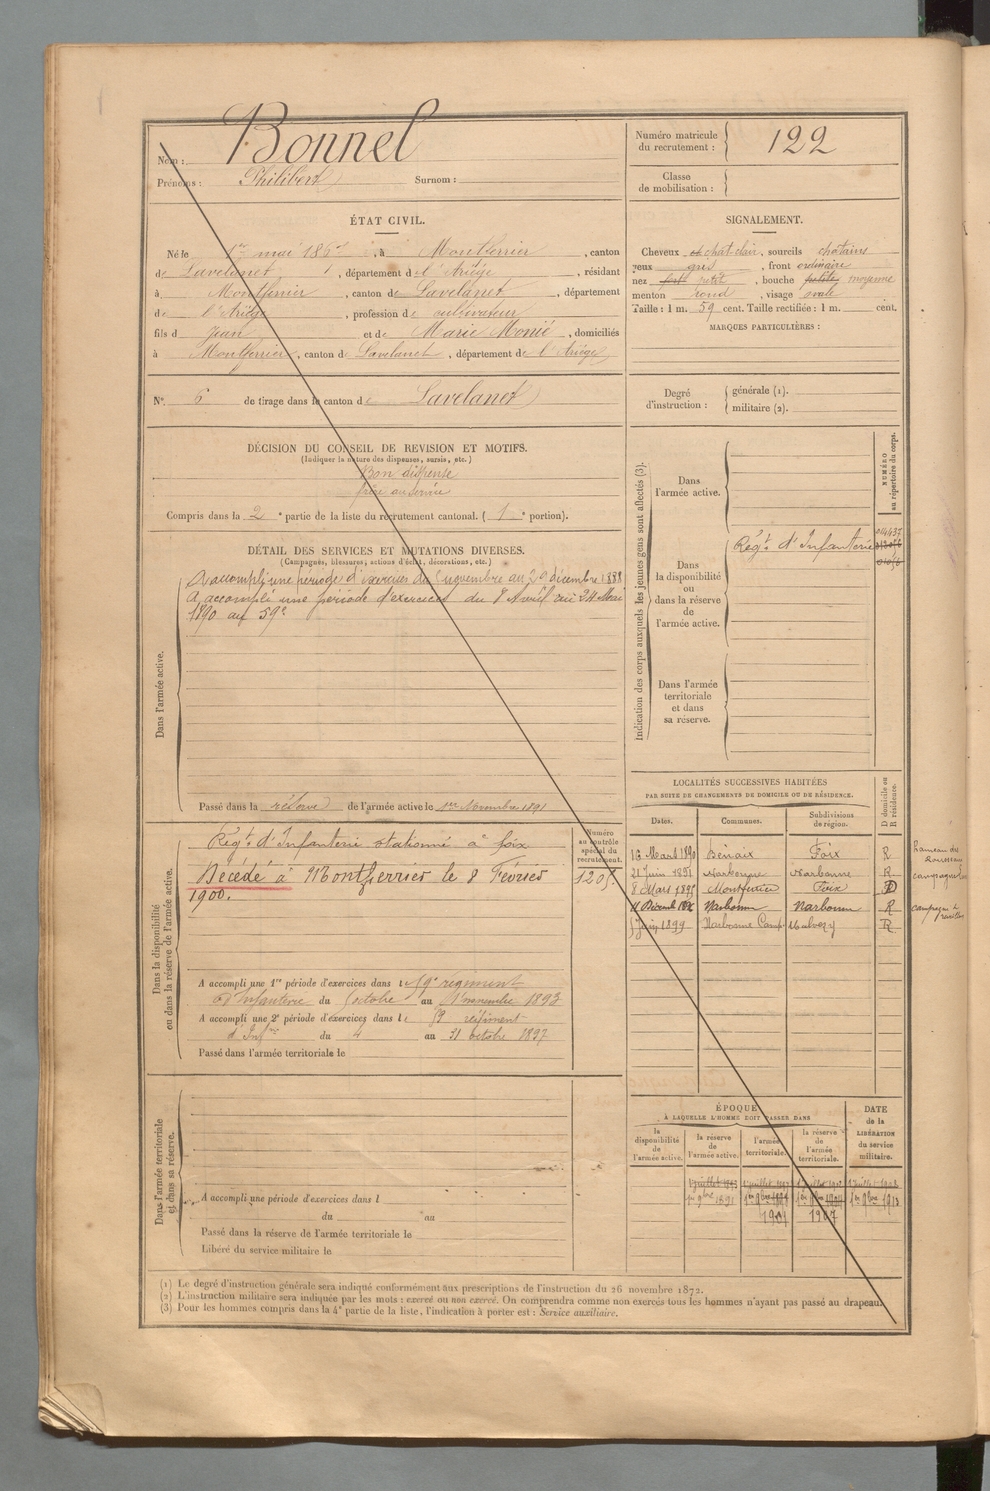 Nom : Bonnel
Prénoms : Philibert Surnom :
Numéro matricule du recrutement : 122
Classe de mobilisation :
ÉTAT CIVIL.
Né le 1er mai 186 , à Montferrier , canton
de Lavelanet , département de l'Ariège , résidant
à Montferrier , canton de Lavelanet , département
de l'Ariège , profession de cultivateur
fils de Jean et de Marie Monié , domiciliés
à Montferrier , canton de Lavelanet , département de l'Ariège
No. 6 de tirage dans le canton de Lavelanet
SIGNALEMENT.
Cheveux chat clair , sourcils chatains
yeux gris , front ordinaire
nez fort petit , bouche petite moyenne
menton rond , visage ovale
Taille : 1 m. 59 cent. Taille rectifiée : 1 m. cent.
MARQUES PARTICULIÈRES :
Degré d'instruction : générale (1).
militaire (2).
DÉCISION DU CONSEIL DE REVISION ET MOTIFS.
(Indiquer la nature des dispenses, sursis, etc.)
Bon dispensé
frère au service
Compris dans la 2e partie de la liste du recrutement cantonal. ( 1e portion).
DÉTAIL DES SERVICES ET MUTATIONS DIVERSES.
(Campagnes, blessures, actions d'éclat, décorations, etc.)
Dans l'armée active.
A accompli une période d'exercices du novembre au 29 décembre 1888
A accompli une période d'exercices du 8 Avril au 24 Mai
1890 au 59e
Passé dans la réserve de l'armée active le 1er Novembre 1891
Indication des corps auxquels les jeunes gens sont affectés (3).
NUMÉRO au répertoire du corps.
Dans l'armée active.
Dans la disponibilité ou dans la réserve de l'armée active.
Régt d'Infanterie
Dans l'armée territoriale et dans sa réserve.
Dans la disponibilité ou dans la réserve de l'armée active.
Numéro au contrôle spécial du recrutement.
Régt d'Infanterie stationné à foix
Décédé à Montferrier le 8 Février
1900.
A accompli une 1re période d'exercices dans le 59e régiment
d'Infanterie du octobre au novembre 1893
A accompli une 2e période d'exercices dans le 59 régiment
d'Infrie du 4 au 31 octobre 1897
Passé dans l'armée territoriale le
LOCALITÉS SUCCESSIVES HABITÉES
PAR SUITE DE CHANGEMENTS DE DOMICILE OU DE RÉSIDENCE.
D domicile ou R résidence.
Dates. Communes. Subdivisions de région.
16 Mars 1890 Bénaix Foix R
21 Juin 1891 Narbonne Narbonne R
8 Mars 1895 Montferrier Foix D
Narbonne Narbonne R
Juin 1899 Narbonne Camp. R
Dans l'armée territoriale et dans sa réserve.
A accompli une période d'exercices dans l
du au
Passé dans la réserve de l'armée territoriale le
Libéré du service militaire le
ÉPOQUE
À LAQUELLE L'HOMME DOIT PASSER DANS
la disponibilité de l'armée active. la réserve de l'armée active. l'armée territoriale. la réserve de l'armée territoriale.
DATE de la LIBÉRATION du service militaire.
1er 9bre 1891
1901 1907
1er 9bre 1913
(1) Le degré d'instruction générale sera indiqué conformément aux prescriptions de l'instruction du 26 novembre 1872.
(2) L'instruction militaire sera indiquée par les mots : exercé ou non exercé. On comprendra comme non exercés tous les hommes n'ayant pas passé au drapeau.
(3) Pour les hommes compris dans la 4e partie de la liste, l'indication à porter est : Service auxiliaire.